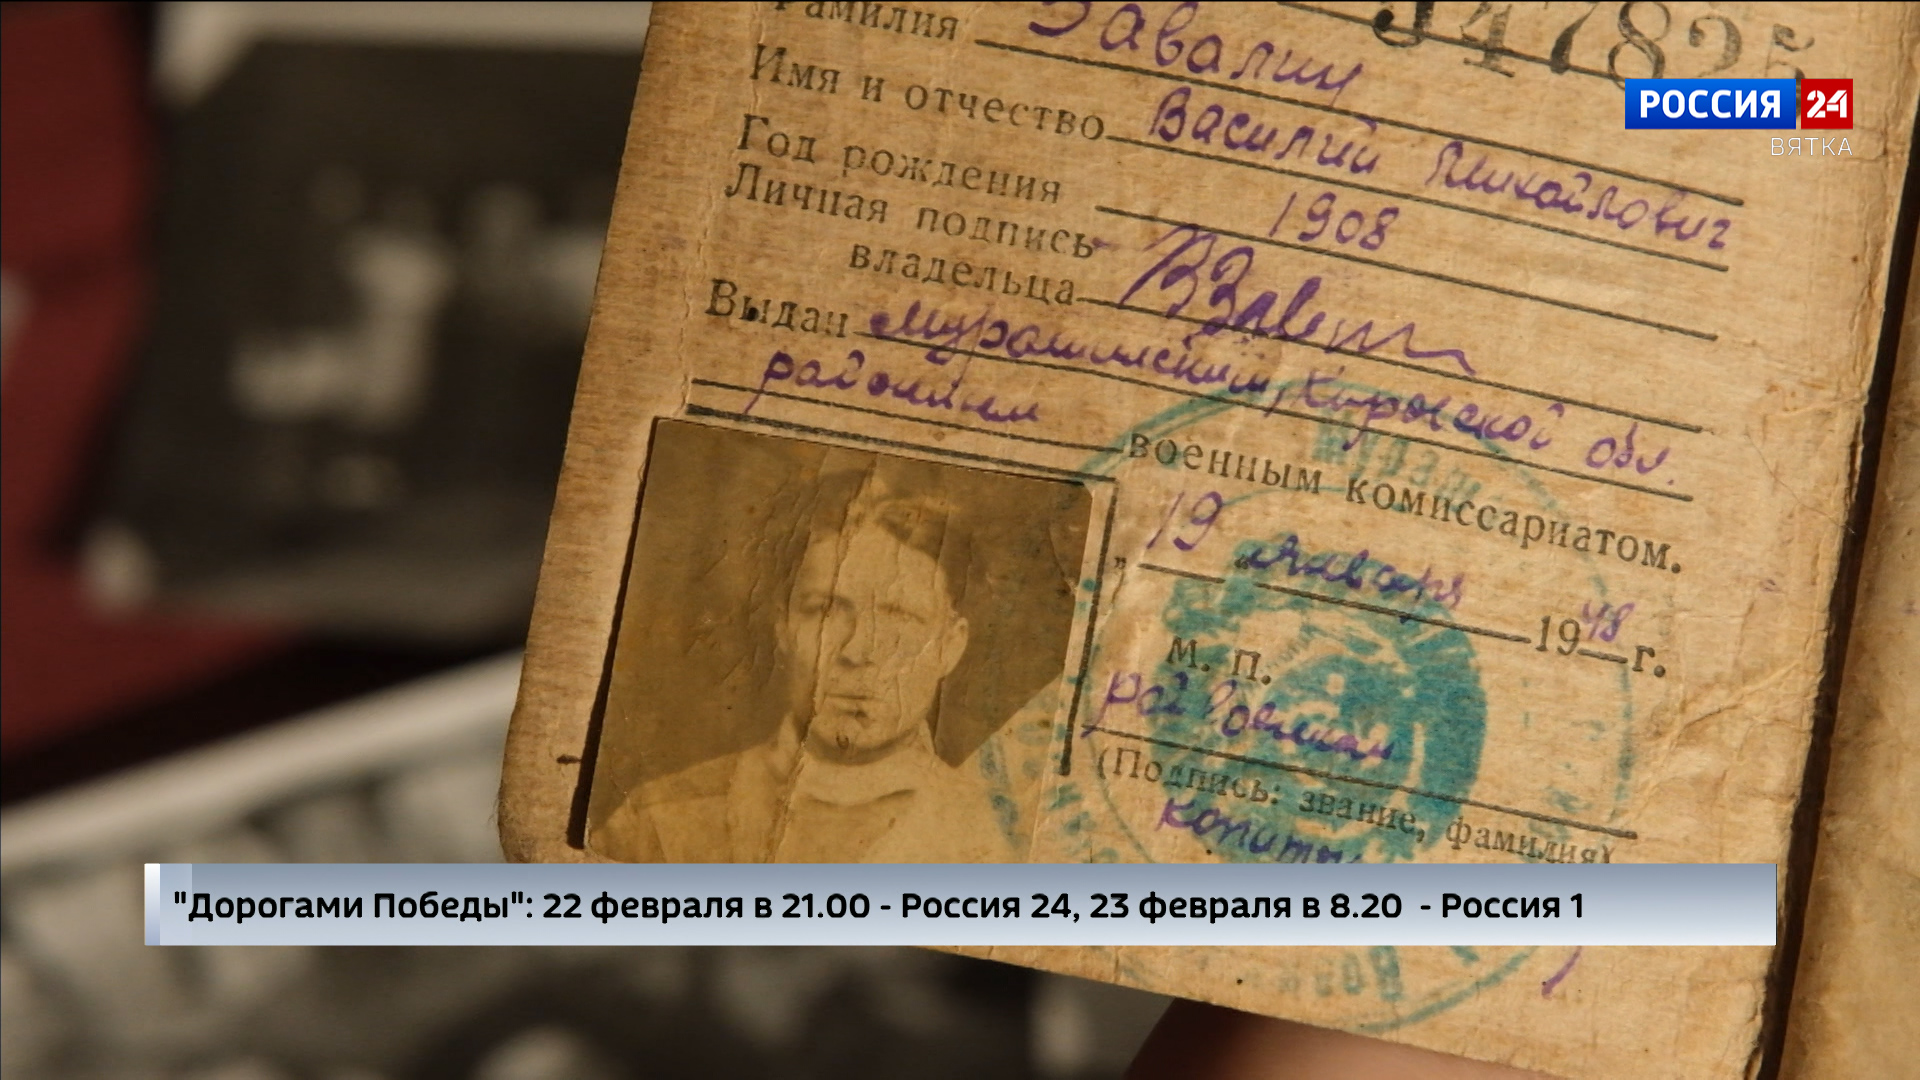 347825
Фамилия Завалин
РОССИЯ 24
ВЯТКА
Имя и отчество Василий Михайлович
Год рождения 1908
Личная подпись
владельца
Выдан Мурашинским, Кировской обл.
районным
военным комиссариатом.
„19 “ января 1948 г.
М. П.
райвоенком
(Подпись: звание, фамилия)
"Дорогами Победы": 22 февраля в 21.00 - Россия 24, 23 февраля в 8.20 - Россия 1